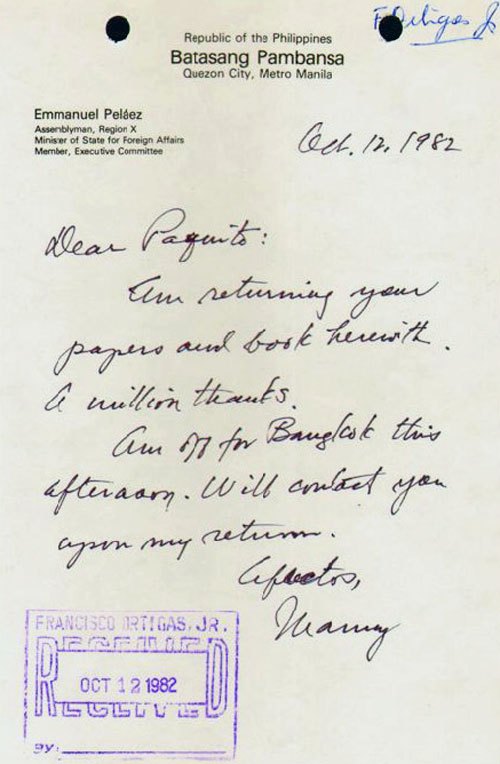 F Ortigas Jr
Republic of the Philippines
Batasang Pambansa
Quezon City, Metro Manila
Emmanuel Peláez
Assemblyman, Region X
Minister of State for Foreign Affairs
Member, Executive Committee
Oct. 12, 1982
Dear Paquito:
Am returning your
papers and book herewith.
A million thanks.
Am off for Bangkok this
afternoon. Will contact you
upon my return.
Afectos,
Manny
FRANCISCO ORTIGAS, JR.
RECEIVED
OCT 12 1982
BY: